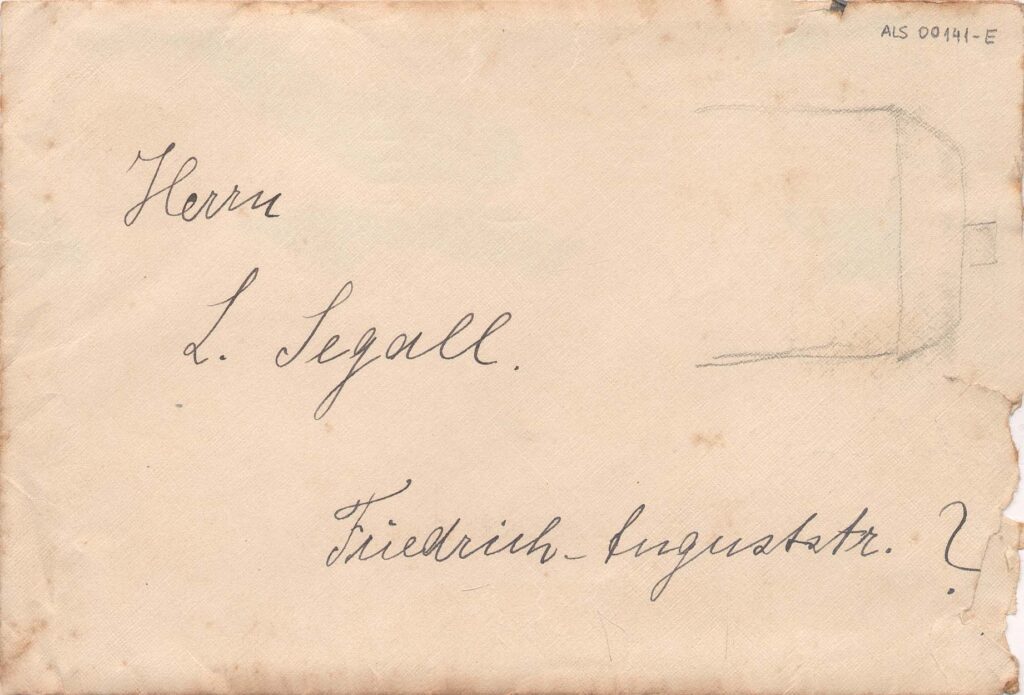 ALS 00141-E
Herrn
L. Segall.
Friedrich-Auguststr. ?